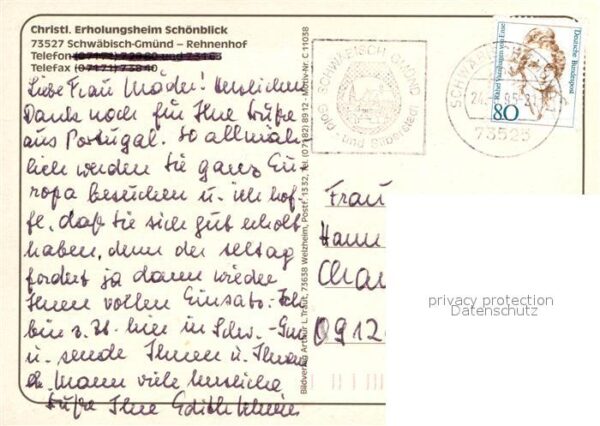 Christl. Erholungsheim Schönblick
73527 Schwäbisch-Gmünd – Rehnenhof
Telefon
Telefax (07171) 73840
Liebe Frau Mader! Herzlichen
Dank noch für Ihre Grüße
aus Portugal. So allmäh-
lich werden Sie ganz Eu-
ropa besuchen u. ich hof-
fe, daß Sie sich gut erholt
haben, denn der Alltag
fordert ja dann wieder
Ihren vollen Einsatz. Ich
bin z. Zt. hier in Schw.-Gmü
u. sende Ihnen u. Ihrem
Mann viele herzliche
Grüße Ihre Edith
Bildverlag Arthur L. Traut, 73638 Welzheim, Postf. 1332, Tel. (07182) 8912 · Motiv-Nr. C 11038
SCHWÄBISCH GMÜND
Gold - und Silberstadt
SCHWÄ
73525
Deutsche Bundespost
Rahel Varnhagen von Ense
80
Frau
Hann
0912
privacy protection
Datenschutz